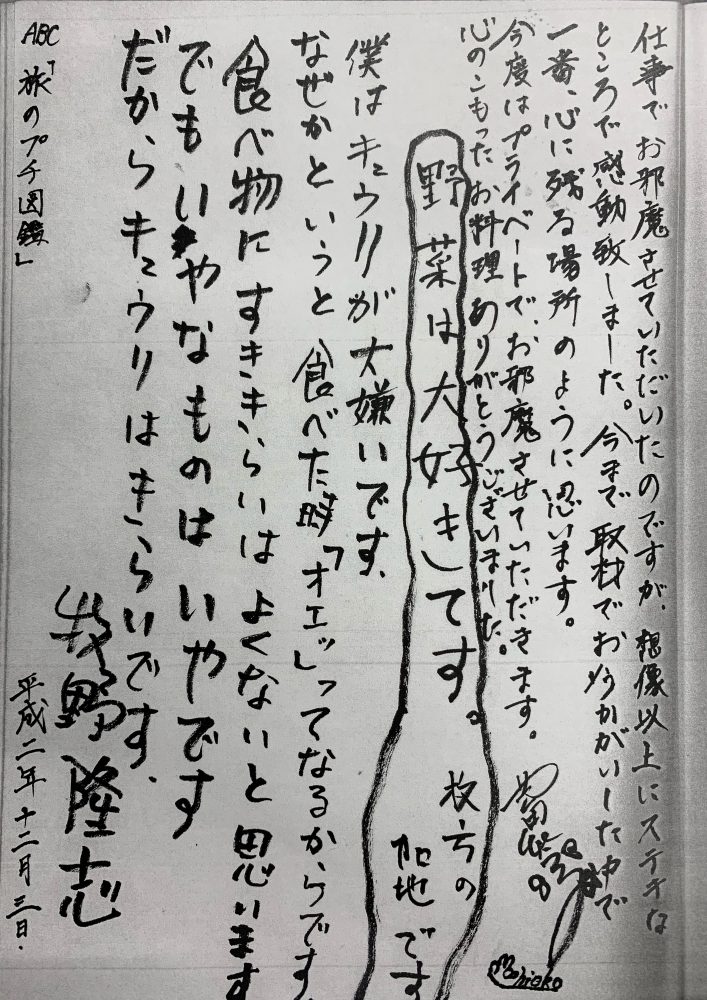 仕事でお邪魔させていただいたのですが、想像以上にステキな
ところで感動致しました。今まで取材でおうかがいした中で
一番、心に残る場所のように思います。
今度はプライベートで、お邪魔させていただきます。
心のこもったお料理ありがとうございました。
Michiko
野菜は大好きてす。
枚方の
加地です
僕はキュウリが大嫌いです、
なぜかというと食べた時「オエッ」ってなるからです、
食べ物にすききらいはよくないと思います
でもいやなものはいやです
だからキュウリはきらいです、
牧野隆志
平成二年十二月三日.
ABC「旅のプチ図鑑」